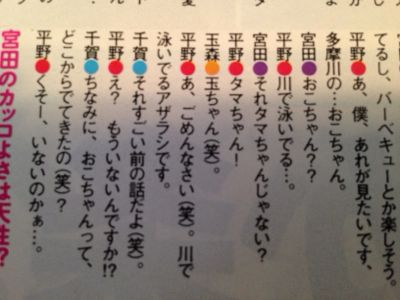 てるし、バーベキューとか楽しそう。
平野●あ、僕、あれが見たいです、
多摩川の…おこちゃん。
宮田●おこちゃん??
平野●川で泳いでる…。
宮田●それタマちゃんじゃない?
平野●タマちゃん!
玉森●玉ちゃん(笑)。
平野●あ、ごめんなさい(笑)。川で
泳いでるアザラシです。
千賀●それすごい前の話だよ(笑)。
平野●え? もういないんですか!?
千賀●ちなみに、おこちゃんって、
どこからでてきたの(笑)?
平野●くそー、いないのかぁ…。
宮田のカッコよさは天性?